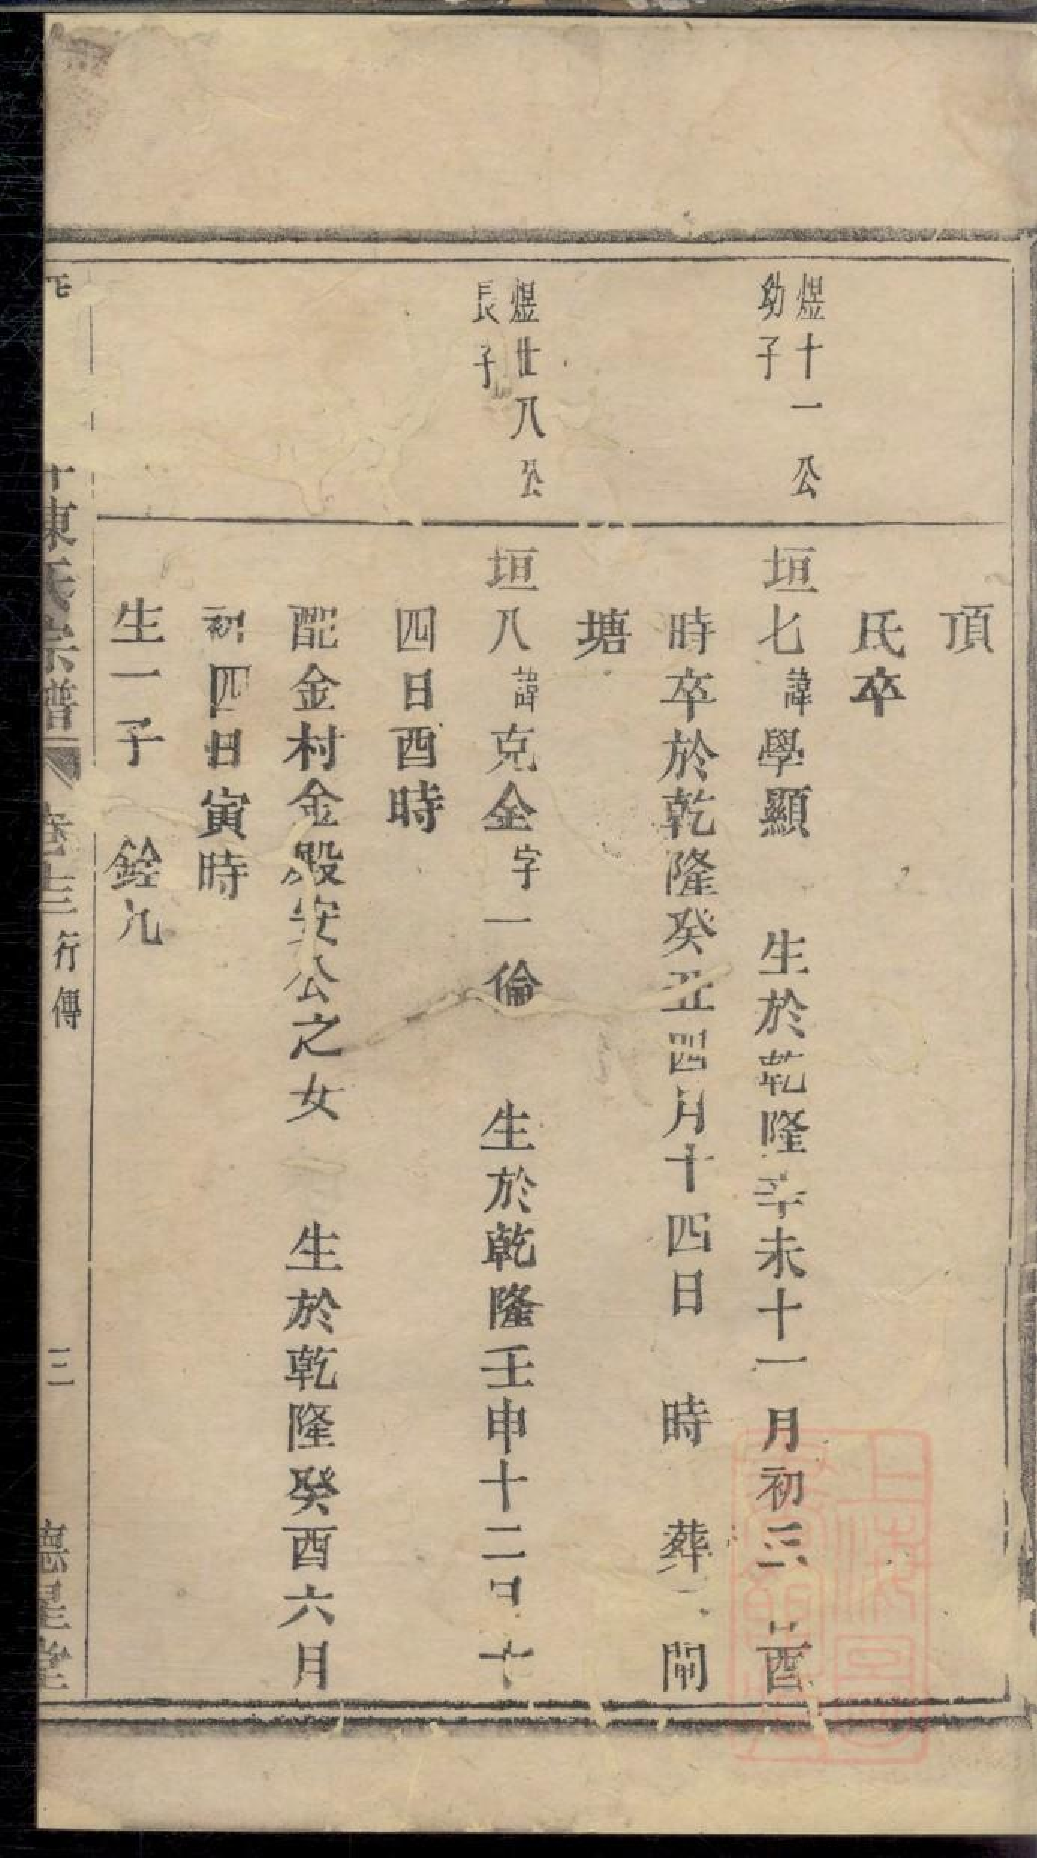 頂
氏卒
煜十一公
幼子
垣七諱學顯 生於乾隆辛未十一月初三日酉
時卒於乾隆癸丑四月十四日 時 葬 閙
塘
煜廿八公
長子
垣八諱克金字一倫 生於乾隆壬申十二月十
四日酉時
配金村金殿安公之女 生於乾隆癸酉六月
初四日寅時
生一子 銓九
陳氏宗譜 卷十三 行傳 三 德星堂